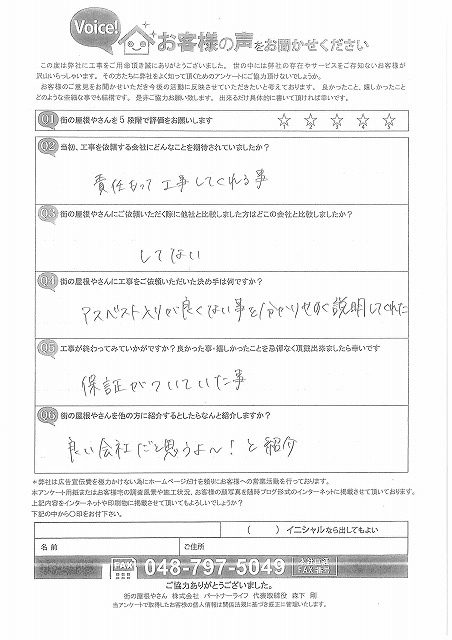 Voice! お客様の声をお聞かせください
この度は弊社に工事をご用命頂き誠にありがとうございました。 世の中には弊社の存在やサービスをご存知ないお客様が
沢山いらっしゃいます。その方たちに弊社をよく知って頂くためのアンケートにご協力頂けないでしょうか。
お客様のご意見をお聞かせいただき今後の活動に反映させていただきたいと考えております。 良かったこと、嬉しかったこと
どのような些細な事でも結構です。 是非ご協力お願い致します。 出来るだけ具体的に書いて頂ければ幸いです。
Q1 街の屋根やさんを5段階で評価をお願いします ☆ ☆ ☆ ☆ ☆
Q2 当初、工事を依頼する会社にどんなことを期待されていましたか?
責任もって工事してくれる事
Q3 街の屋根やさんにご依頼いただく際に他社と比較しました方はどこの会社と比較しましたか?
してない
Q4 街の屋根やさんに工事をご依頼いただいた決め手は何ですか?
アスベスト入りが良くない事を分かりせやく説明してくれた
Q5 工事が終わってみていかがですか?良かった事・嬉しかったことを忌憚なく頂戴出来ましたら幸いです
保証がついていた事
Q6 街の屋根やさんを他の方に紹介するとしたらなんと紹介しますか?
良い会社だと思うよ〜!と紹介
*弊社は広告宣伝費を極力かけない為にホームページだけを頼りにお客様への営業活動を行っております。
本アンケート用紙またはお客様宅の調査風景や施工状況、お客様の顔写真を随時ブログ形式のインターネットに掲載させて頂いております。
上記内容をインターネットや印刷物に掲載させて頂いてもよろしいでしょうか?
下記の中から〇印をお付下さい。
( ) イニシャルなら出してもよい
名前 ご住所
FAX 048-797-5049
FAX番号
ご協力ありがとうございました。
街の屋根やさん 株式会社 パートナーライフ 代表取締役 森下 剛
当アンケートで取得したお客様の個人情報は関係法規に基づき適正に管理いたします。